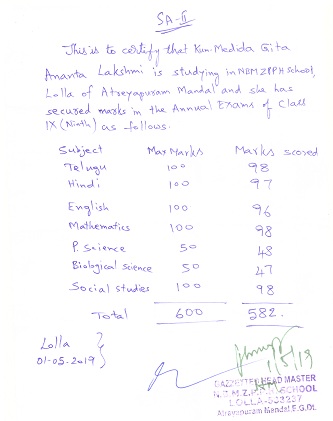 SA-II
This is to certify that Kum. Medida Gita
Ananta Lakshmi is studying in N.B.M.Z.P.P.H School,
Lolla of Atreyapuram Mandal and she has
secured marks in the Annual Exams of Class
IX (Ninth) as follows.
Subject Max Marks Marks scored
Telugu 100 98
Hindi 100 97
English 100 96
Mathematics 100 98
P. Science 50 48
Biological science 50 47
Social studies 100 98
Total 600 582.
Lolla
01-05-2019
1/5/19
GAZZETTED HEAD MASTER
SCHOOL
LOLLA-
Atreyapuram Mandal.E.G.Dt.